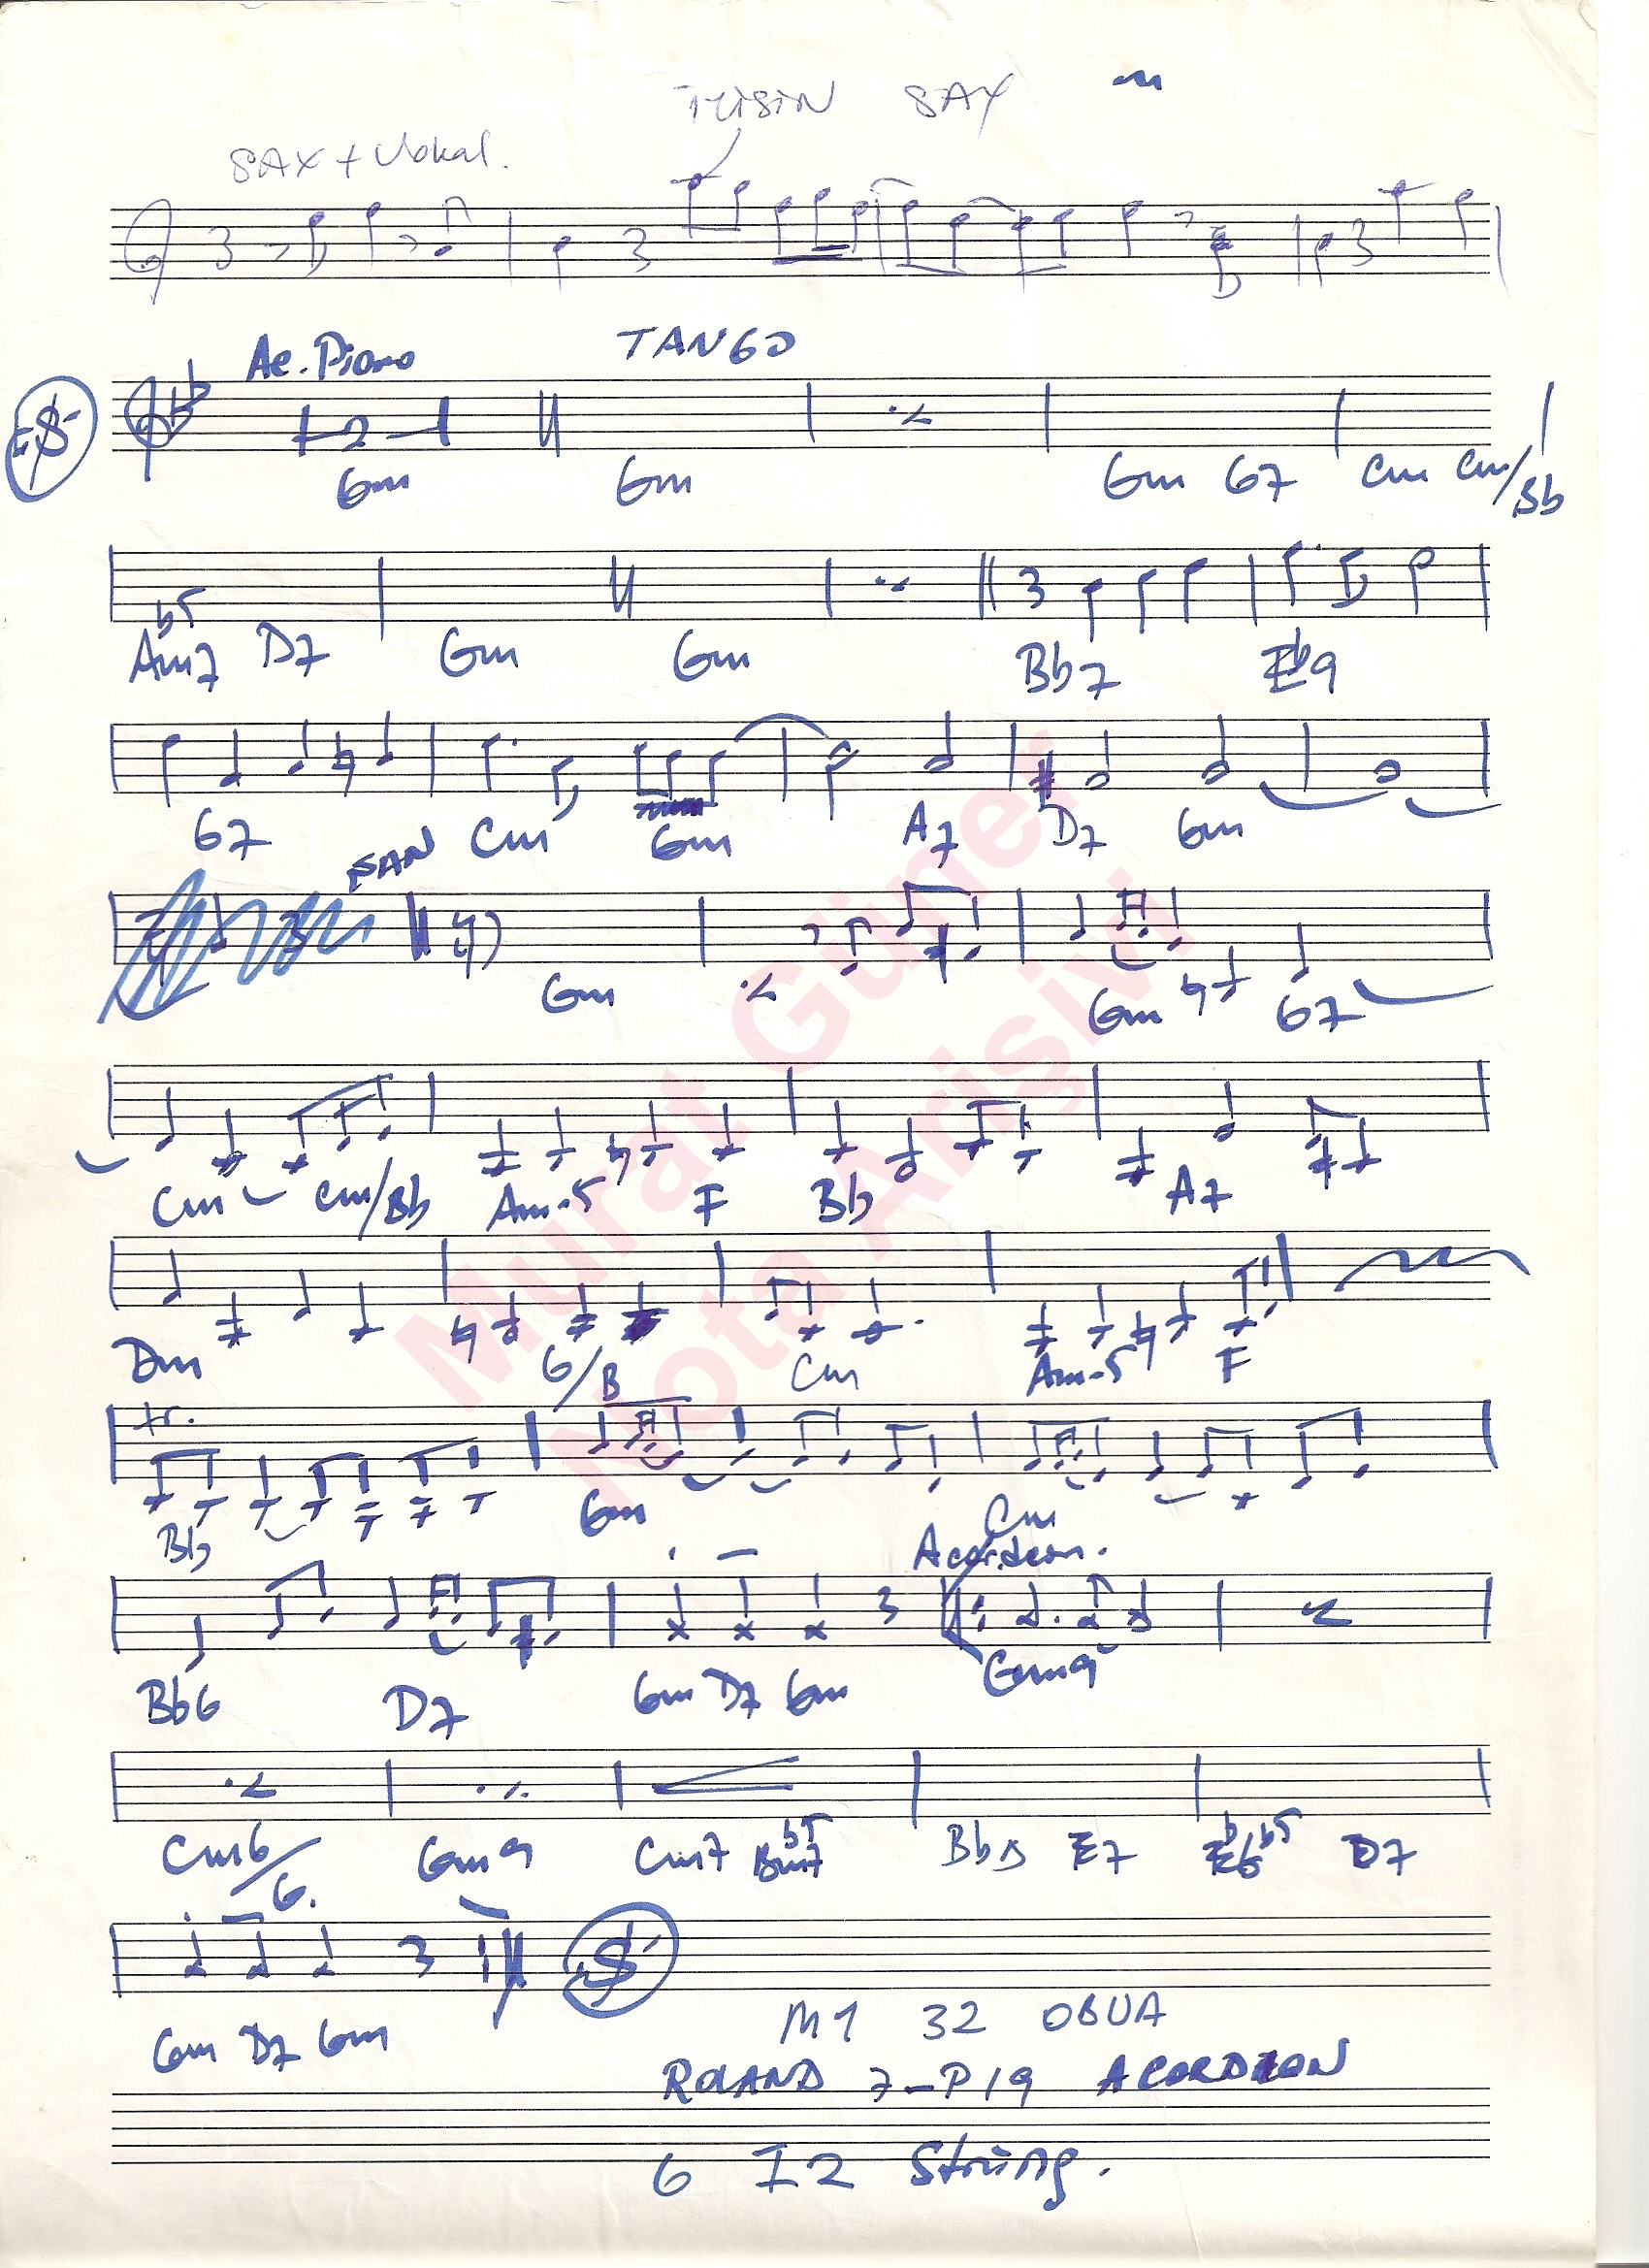 SAX
SAX + Vokal.
Ac. Piano TANGO
2
Gm Gm Gm G7 Cm Cm/Bb
Am7b5 D7 Gm Gm Bb7 Eb9
G7 Cm Gm A7 D7 Gm
ŞAN
Gm Gm G7
Cm Cm/Bb Am-5 F Bb A7
Dm G/B Cm Am-5 F
tr.
Bb Gm Cm
Acordeon.
Bb6 D7 Gm D7 Gm Gm9
Cm6/G. Gm9 Cm7 Bm7b5 E7 Eb6b5 D7
Gm D7 Gm
M1 32 OBUA
ROLAND 7-P19 ACORDEON
6 I2 String.
Murat Güner
Nota Arişivi